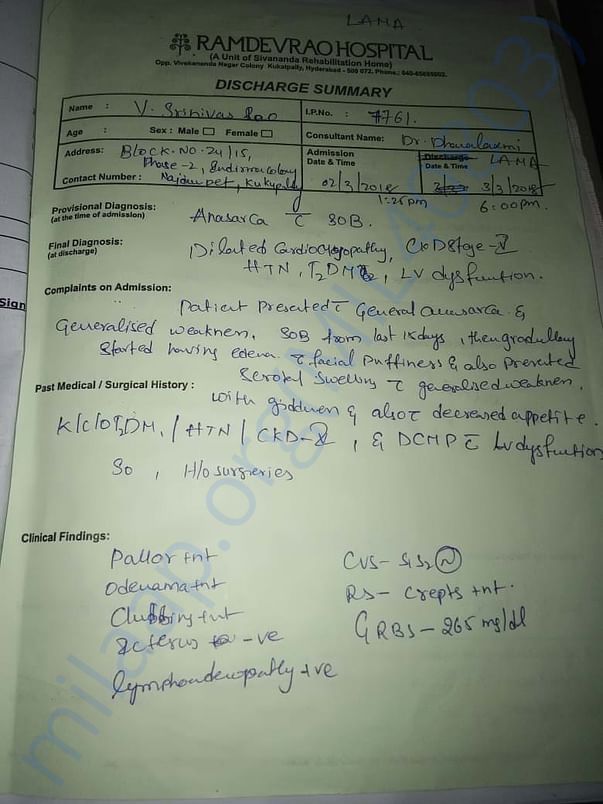 LAMA
RAMDEVRAO HOSPITAL
(A Unit of Sivananda Rehabilitation Home)
Opp. Vivekananda Nagar Colony Kukatpally, Hyderabad - 500 072. Phone.: 040-65655003.
DISCHARGE SUMMARY
Name : V. Srinivas Rao
I.P.No. : 7761.
Age : Sex : Male Female
Consultant Name: Dr. Dhanalaxmi
Address: BLOCK-NO-24/15,
Phase-2, Indirmacolony
Contact Number :
Admission Date & Time 02/3/2018 1:25pm
Discharge LAMA
Date & Time 3/3/2018 6:00pm.
Provisional Diagnosis: Anasarca c̄ SOB.
(at the time of admission)
Final Diagnosis: Dilated Cardiomyopathy, CKD Stage-V
(at discharge) HTN, T2DM, LV dysfuntion.
Complaints on Admission:
Patient Presented c̄ General anasarca &
Generalised weaknem. SOB from last 15days, then gradullay
started having edema c̄ facial Puffiness & also Presented
Scrotal Swelling c̄ generalised weaknen,
Past Medical / Surgical History :
with giddinen & also c̄ decreased appetite.
K/C/O T2DM, / HTN / CKD-V, & DCMP c̄ LV dysfunction
So, H/o surgeries
Clinical Findings:
Pallor +nt
CVS- S1S2 N
odenama +nt
RS- crepts +nt.
Clubbing +nt
GRBS - 265 mg/dl
Icterus -ve
lymphoadenopathy +ve
Sign
milaap.org